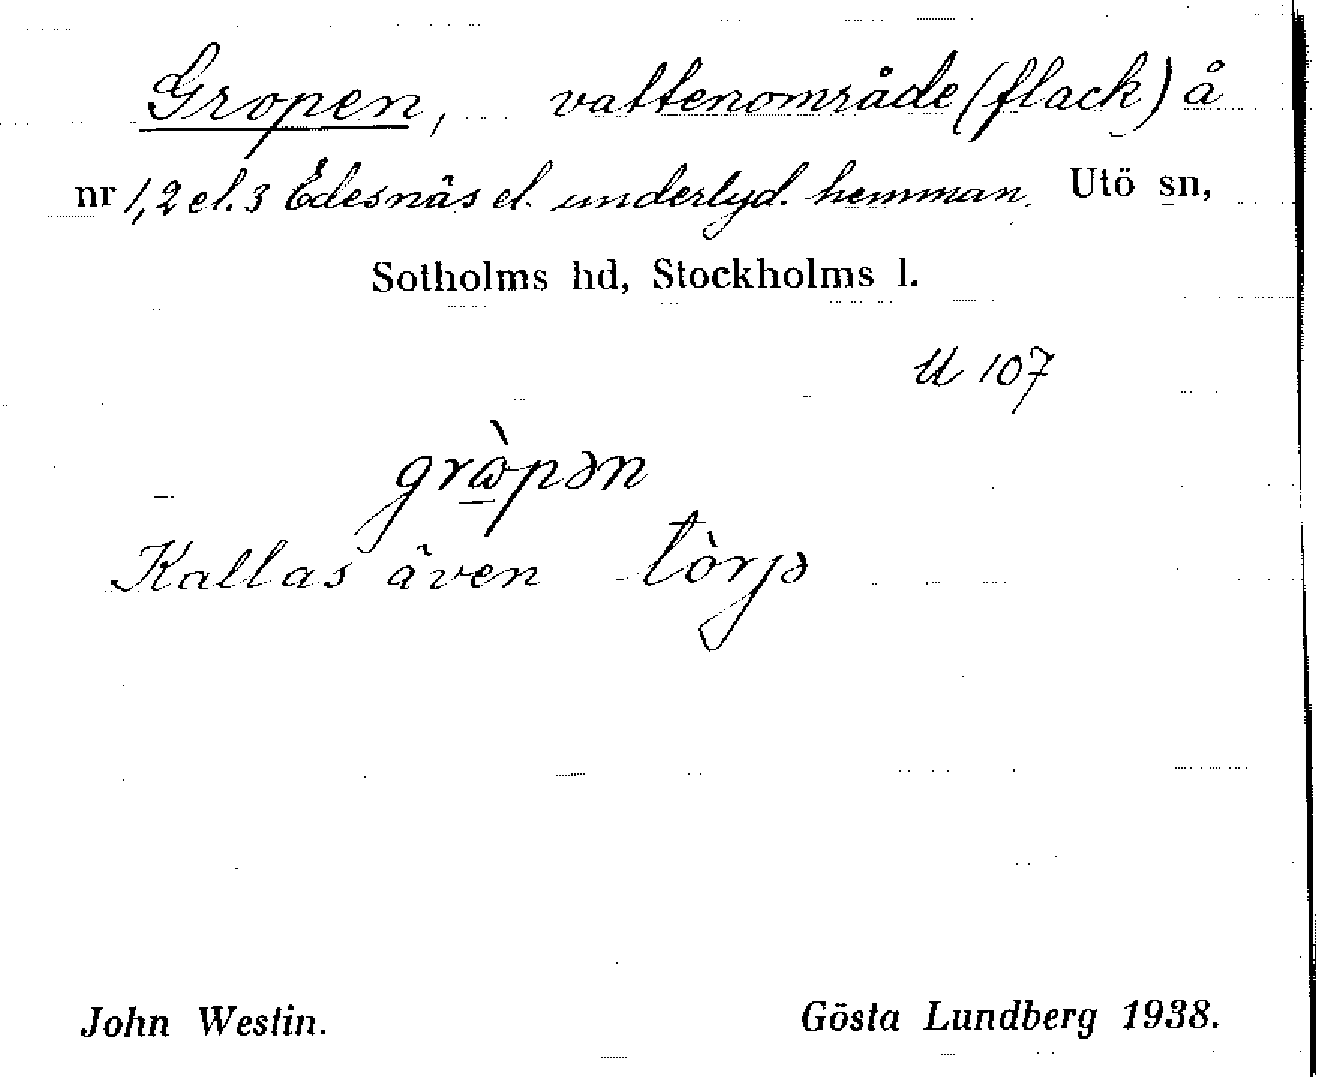 Gropen, vattenområde (flack) å
nr 1, 2 el. 3 Edesnäs el. underlyd. hemman. Utö sn,
Sotholms hd, Stockholms l.
U 107
grὼ̲pən
Kallas även tòrjə
John Westin. Gösta Lundberg 1938.